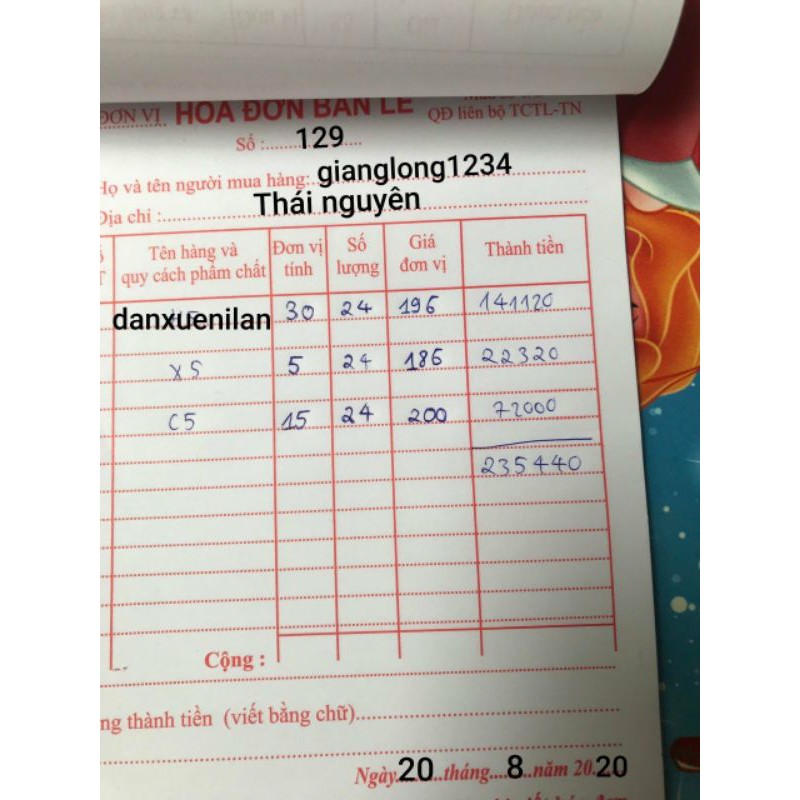 ĐƠN VỊ HÓA ĐƠN BÁN LẺ
QĐ liên bộ TCTL-TN
Số :........129....
Họ và tên người mua hàng:..gianglong1234
Địa chỉ :............Thái nguyên
Tên hàng và quy cách phẩm chất Đơn vị tính Số lượng Giá đơn vị Thành tiền
danxuenilan 30 24 196 141120
X5 5 24 186 22320
C5 15 24 200 72000
235440
Cộng :
ng thành tiền (viết bằng chữ)
Ngày 20 tháng 8 năm 20 20